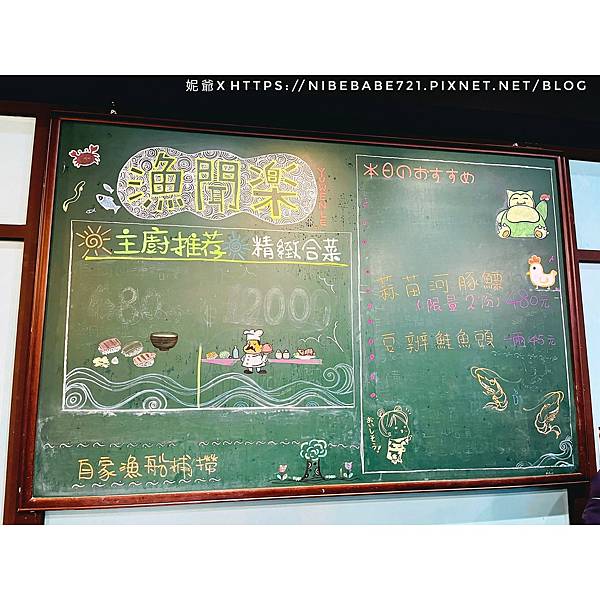 妮爺XHTTPS://NIBEBABE721.PIXNET.NET/BLOG
漁聞楽
主廚推荐 精緻合菜
680 12000
自家漁船捕撈
本日のおすすめ
蒜苗河豚鰾
(限量2份)480元
豆瓣鮭魚頭 一兩45元
おいしそう!